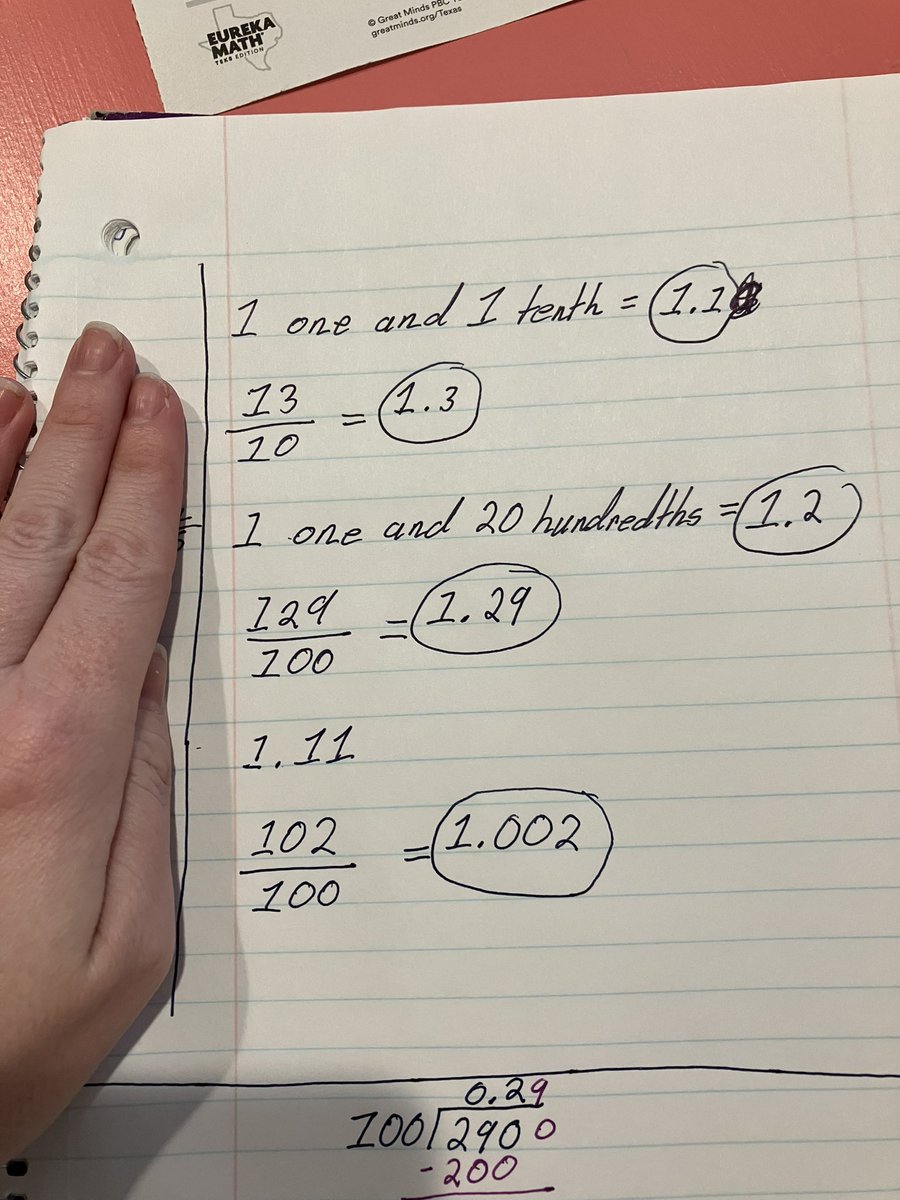 EUREKA
MATH
TEKS EDITION
© Great Minds PBC
greatminds.org/Texas
1 one and 1 tenth = 1.1
13/10 = 1.3
1 one and 20 hundredths = 1.2
129/100 = 1.29
1.11
102/100 = 1.002
0.29
100 2900
-200